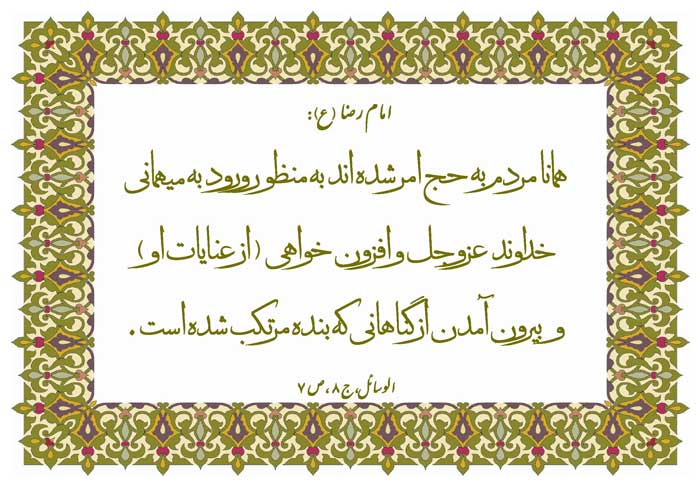 امام رضا (ع):
همانا مردم به حج امر شده اند به منظور ورود به میهمانی
خداوند عزوجل و افزون خواهی (از عنایات او)
و بیرون آمدن از گناهانی که بنده مرتکب شده است.
الوسائل، ج ۸، ص ۷